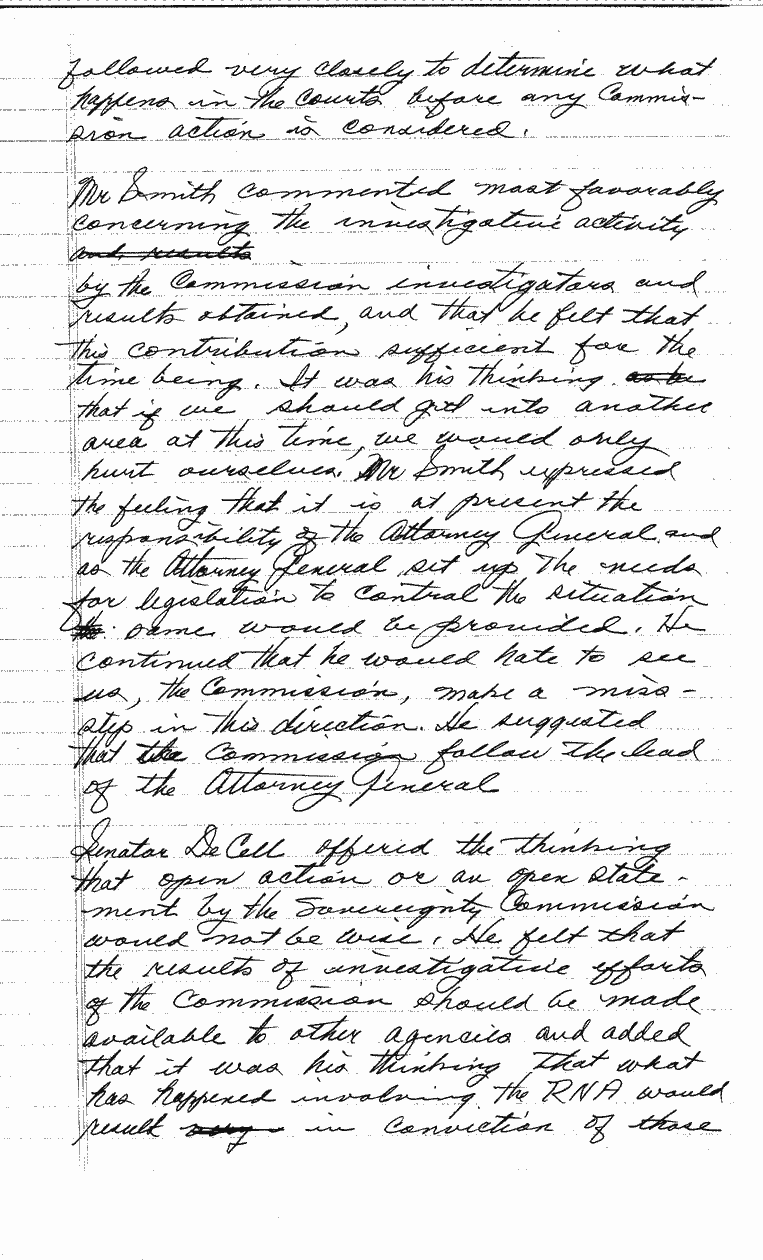 followed very closely to determine what
happens in the Courts before any Commis-
sion action is considered.
Mr Smith commented most favorably
concerning the investigative activity
and results
by the Commission investigators and
results obtained, and that he felt that
this contribution sufficient for the
time being. It was his thinking
that if we should get into another
area at this time, we would only
hurt ourselves. Mr Smith expressed
the feeling that it is at present the
responsibility of the Attorney General and
as the Attorney General set up the needs
for legislation to control the situation
same would be provided. He
continued that he would hate to see
us, the Commission, make a miss-
step in this direction. He suggested
that the Commission follow the lead
of the Attorney General
Senator DeCell offered the thinking
that open action or an open state-
ment by the Sovereignty Commission
would not be wise. He felt that
the results of investigative efforts
of the Commission should be made
available to other agencies and added
that it was his thinking that what
has happened involving the RNA would
result in conviction of those